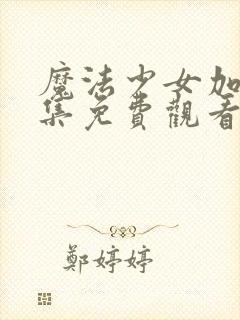 魔法少女加
集免費觀看
鄭婷婷